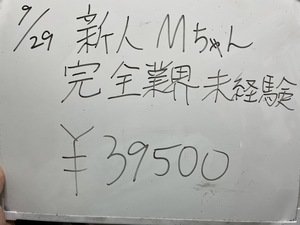 9/29 新人 Mちゃん
完全業界未経験
¥39500